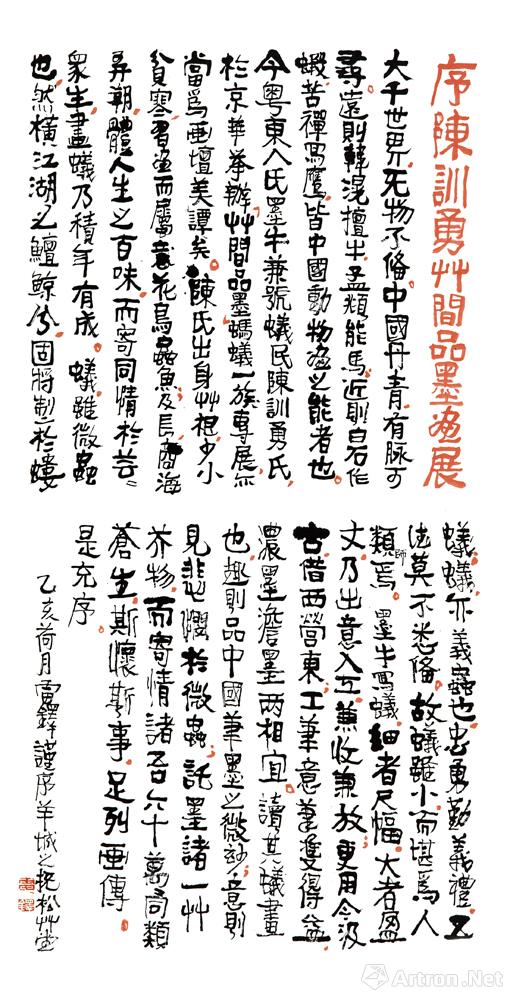 序陳訓勇艸間品墨画展
大千世界无物不備中國丹青有脉可
尋遠則韓滉擅牛孟頫能馬近則白石作
蝦苦禪寫鷹皆中國動物画之能者也
今粤東入氏墨牛兼號蟻民陳訓勇氏
於京華举辦艸間品墨螞蟻一族專展亦
當爲画壇美譚矣陳氏出身艸根少小
貧寒習画而屬意花鳥蟲魚及長商海
弄潮體人生之百味而寄同情於芸芸
衆生畫蟻乃積年有成蟻雖微蟲
也然橫江湖之鱣鯨兮固將制於螻
蟻蟻亦義蟲也忠勇勤義禮五
法莫不悉備故蟻雖小而堪爲人
類師焉墨牛寫蟻細者尺幅大者盈
丈乃出意入工兼收兼放更用今汲
古借西營東工筆意筆雙得益
濃墨澹墨兩相宜讀其蟻畫
也趣則品中國筆墨之微妙意則
見悲憫於微蟲託墨諸一艸
芥物而寄情諸吾六十萬同類
蒼生斯懷斯事足列画傳
是充序
乙亥荷月雷鐸謹序羊城之抚松艸堂
雷鐸
雅昌艺术网
Artron.Net